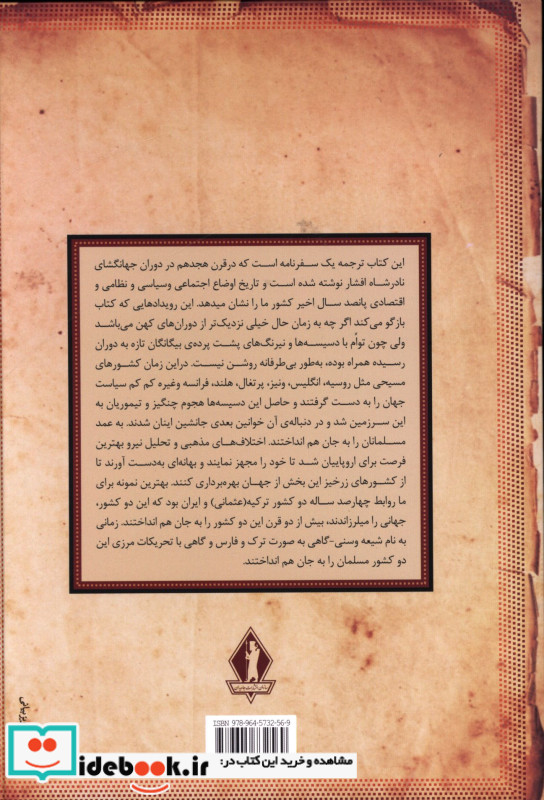 این کتاب ترجمه یک سفرنامه است که درقرن هجدهم در دوران جهانگشای
نادرشاه افشار نوشته شده است و تاریخ اوضاع اجتماعی وسیاسی و نظامی و
اقتصادی پانصد سال اخیر کشور ما را نشان میدهد. این رویدادهایی که کتاب
بازگو می‌کند اگر چه به زمان حال خیلی نزدیک‌تر از دوران‌های کهن می‌باشد
ولی چون توأم با دسیسه‌ها و نیرنگ‌های پشت پرده‌ی بیگانگان تازه به دوران
رسیده همراه بوده، به‌طور بی‌طرفانه روشن نیست. دراین زمان کشورهای
مسیحی مثل روسیه، انگلیس، ونیز، پرتغال، هلند، فرانسه وغیره کم کم سیاست
جهان را به دست گرفتند و حاصل این دسیسه‌ها هجوم چنگیز و تیموریان به
این سرزمین شد و در دنباله‌ی آن خوانین بعدی جانشین اینان شدند. به عمد
مسلمانان را به جان هم انداختند. اختلاف‌های مذهبی و تحلیل نیرو بهترین
فرصت برای اروپاییان شد تا خود را مجهز نمایند و بهانه‌ای به‌دست آورند تا
از کشورهای زرخیز این بخش از جهان بهره‌برداری کنند. بهترین نمونه برای
ما روابط چهارصد ساله دو کشور ترکیه(عثمانی) و ایران بود که این دو کشور،
جهانی را میلرزاندند، بیش از دو قرن این دو کشور را به جان هم انداختند. زمانی
به نام شیعه وسنی-گاهی به صورت ترک و فارس و گاهی با تحریکات مرزی این
دو کشور مسلمان را به جان هم انداختند.
ISBN 978-964-5732-56-9
مشاهده و خرید این کتاب در:
idebook.ir